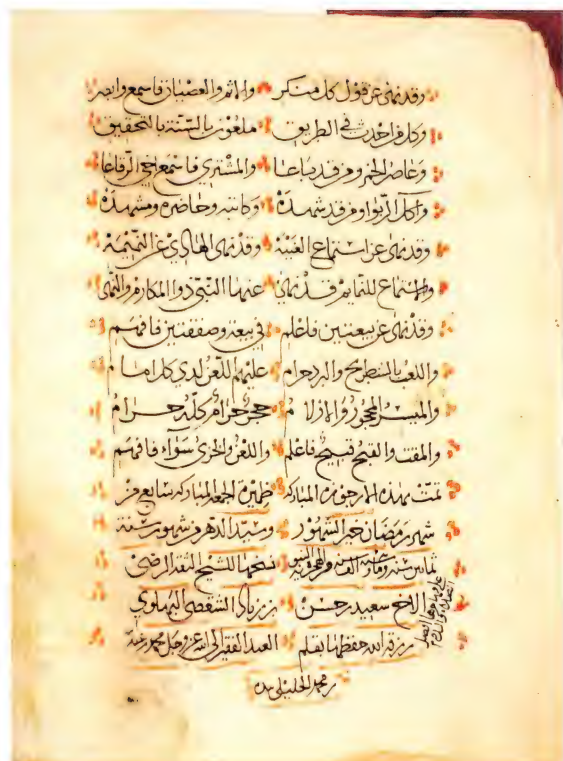 وقد نهى عن قول كل منكر والاثم والعصيان فاسمع وابصر
وكل من احدث في الطريق ملعون بالسنة بالتحقيق
وعاصر الخمر ومن قد باعا والمشتري فاسمع اخي الرفاعا
واكل الربوا ومن قد شهده وكاتبه وحاضره ومشهده
وقد نهى عن استماع الغيبة وقد نهى الهادي عن النميمة
والاستماع للنمايم قد نهى عنها النبي ذو المكارم والنهى
وقد نهى عن بيعتين فاعلم في بيعة وصفقتين فافهم
واللعب بالشطرنج والنرد حرام عليهم اللعن لدى كل امام
والميسر المحجور والازلام حجر حرام كله حرام
والمقت والقبح قبيح فاعلم واللعن والخزي سواء فافهم
تمت بهذه الارجوزة المباركة الجمعة المباركة سابع من
شهر رمضان خير الشهور وسيد الدهر من شهور سنة
ثمانين سنة نسخها للشيخ الثقة الرضي
الاخ سعيد بن حسن بن زياد الشقصي البهلوي
رزقه الله حفظها بقلم العبد الفقير الى الله عز وجل محمد بن عبد الله
بن محمد الخليلي بيده